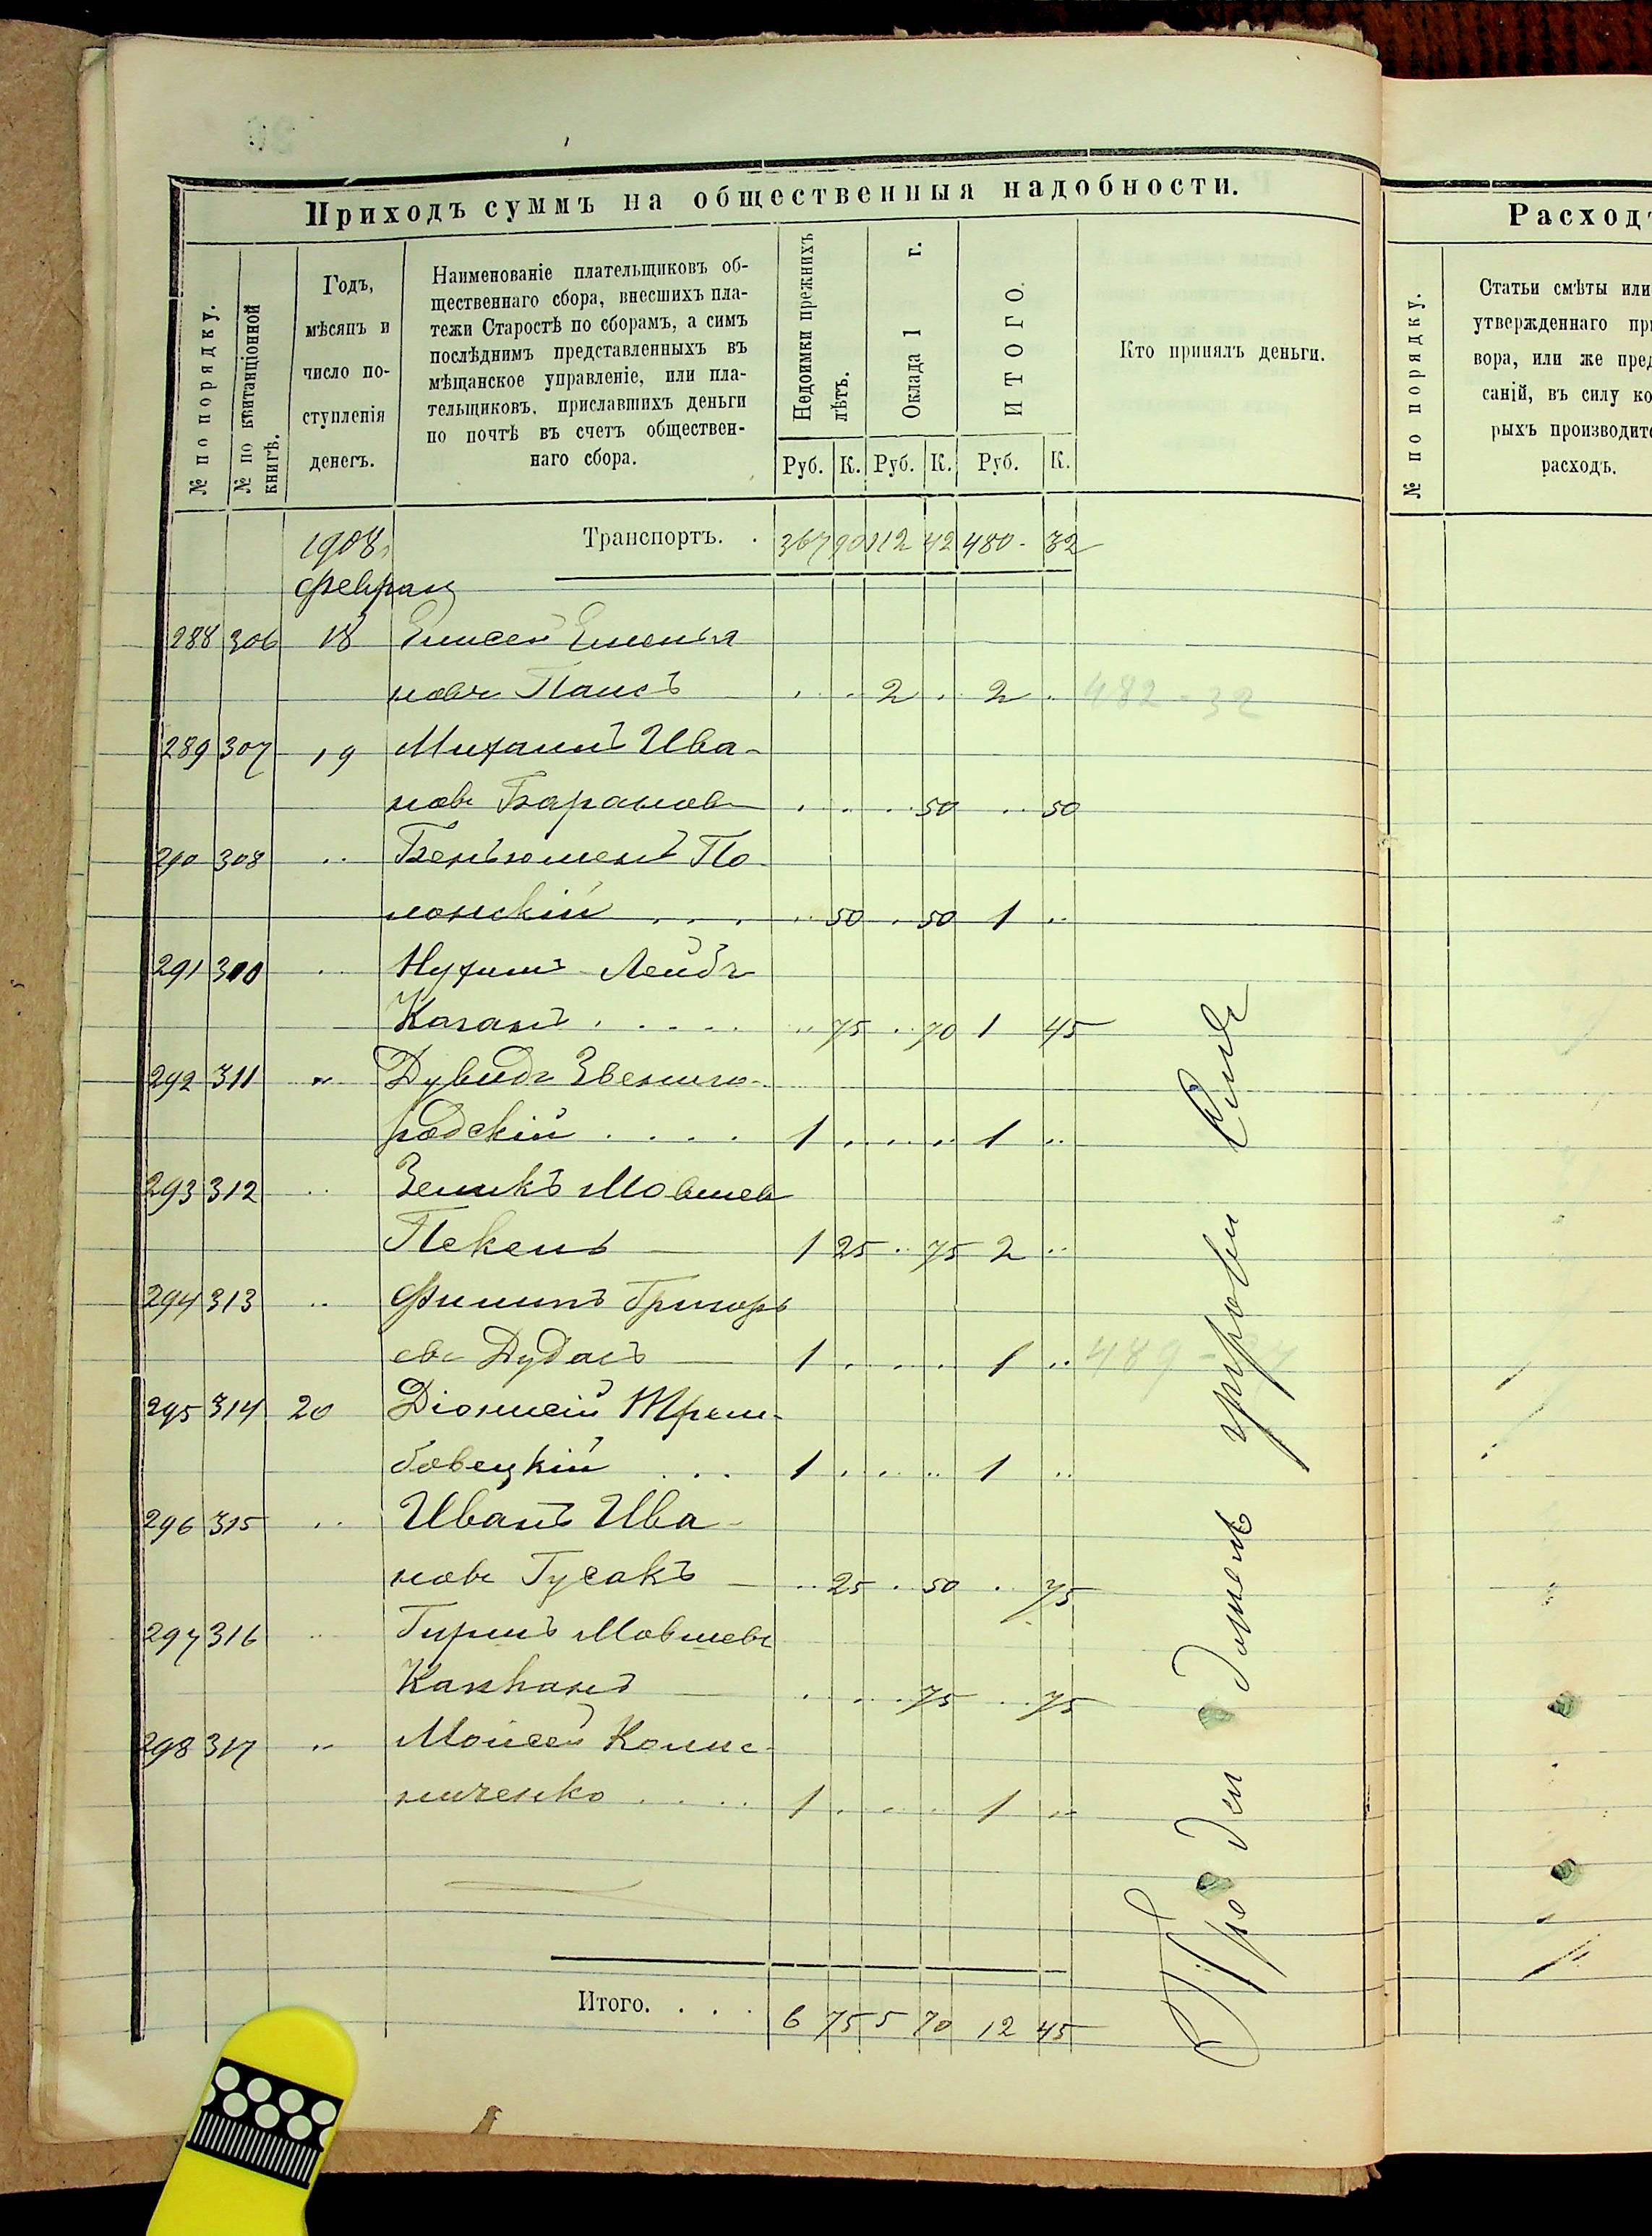 Приходъ суммъ на общественныя надобности.
№ по порядку.
№ по квитанціонной
книгѣ.
Годъ,
мѣсяцъ и
число по-
ступленія
денегъ.
Наименованіе плательщиковъ об-
щественнаго сбора, внесшихъ пла-
тежи Старостѣ по сборамъ, а симъ
послѣднимъ представленныхъ въ
мѣщанское управленіе, или пла-
тельщиковъ, приславшихъ деньги
по почтѣ въ счетъ обществен-
наго сбора.
Недоимки прежнихъ
лѣтъ.
Оклада 1 г.
ИТОГО.
Кто принялъ деньги.
Руб. К. Руб. К. Руб. К.
1908 Транспортъ. . 367 90 112 42 480 - 32
288 306 18 Елисей
2 . 2 . 482 - 32
289 307 19 Михаилъ Ива-
новъ Барановъ . . . . 50 . . 50
290 308 .. По-
лонскій . . . .. 50 . 50 1 ..
291 310 .. Нухимъ Лейбъ
Каганъ . . . . . .. 75 .. 70 1 45
292 311 .. Дувидъ Звениго-
родскій . . . . 1 . . . .. 1 ..
293 312 .. Зеликъ Мовшев
Пекель 1 25 .. 75 2 ..
294 313 .. Филипъ Григорь
евъ Дудасъ — 1 . . . . 1 .. 489 -
295 314 20 Діонисій Трем-
бовецкій . . . 1 . . . .. 1 ..
296 315 .. Иванъ Ива-
новъ Гусакъ — .. 25 . 50 . 75
297 316 .. Гиршъ Мовшевъ
— . . . . 75 . . 75
298 317 .. Моисей Колис-
ниченко . . . . 1 . . . . 1 ..
Итого. . . . 6 75 5 70 12 45
Расходъ
№ по порядку.
Статьи смѣты или
утвержденнаго при
вора, или же пред
саній, въ силу ко
рыхъ производите
расходъ.